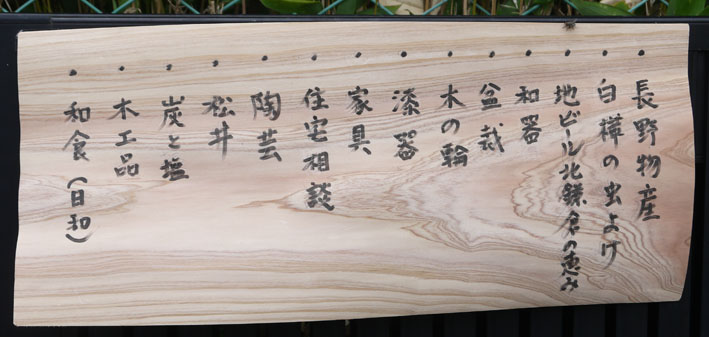 ・長野物産
・白樺の虫よけ
・地ビール北鎌倉の恵み
・和器
・盆裁
・木の輪
・漆器
・家具
・住宅相談
・陶芸
・松井
・炭と塩
・木工品
・和食(日和)